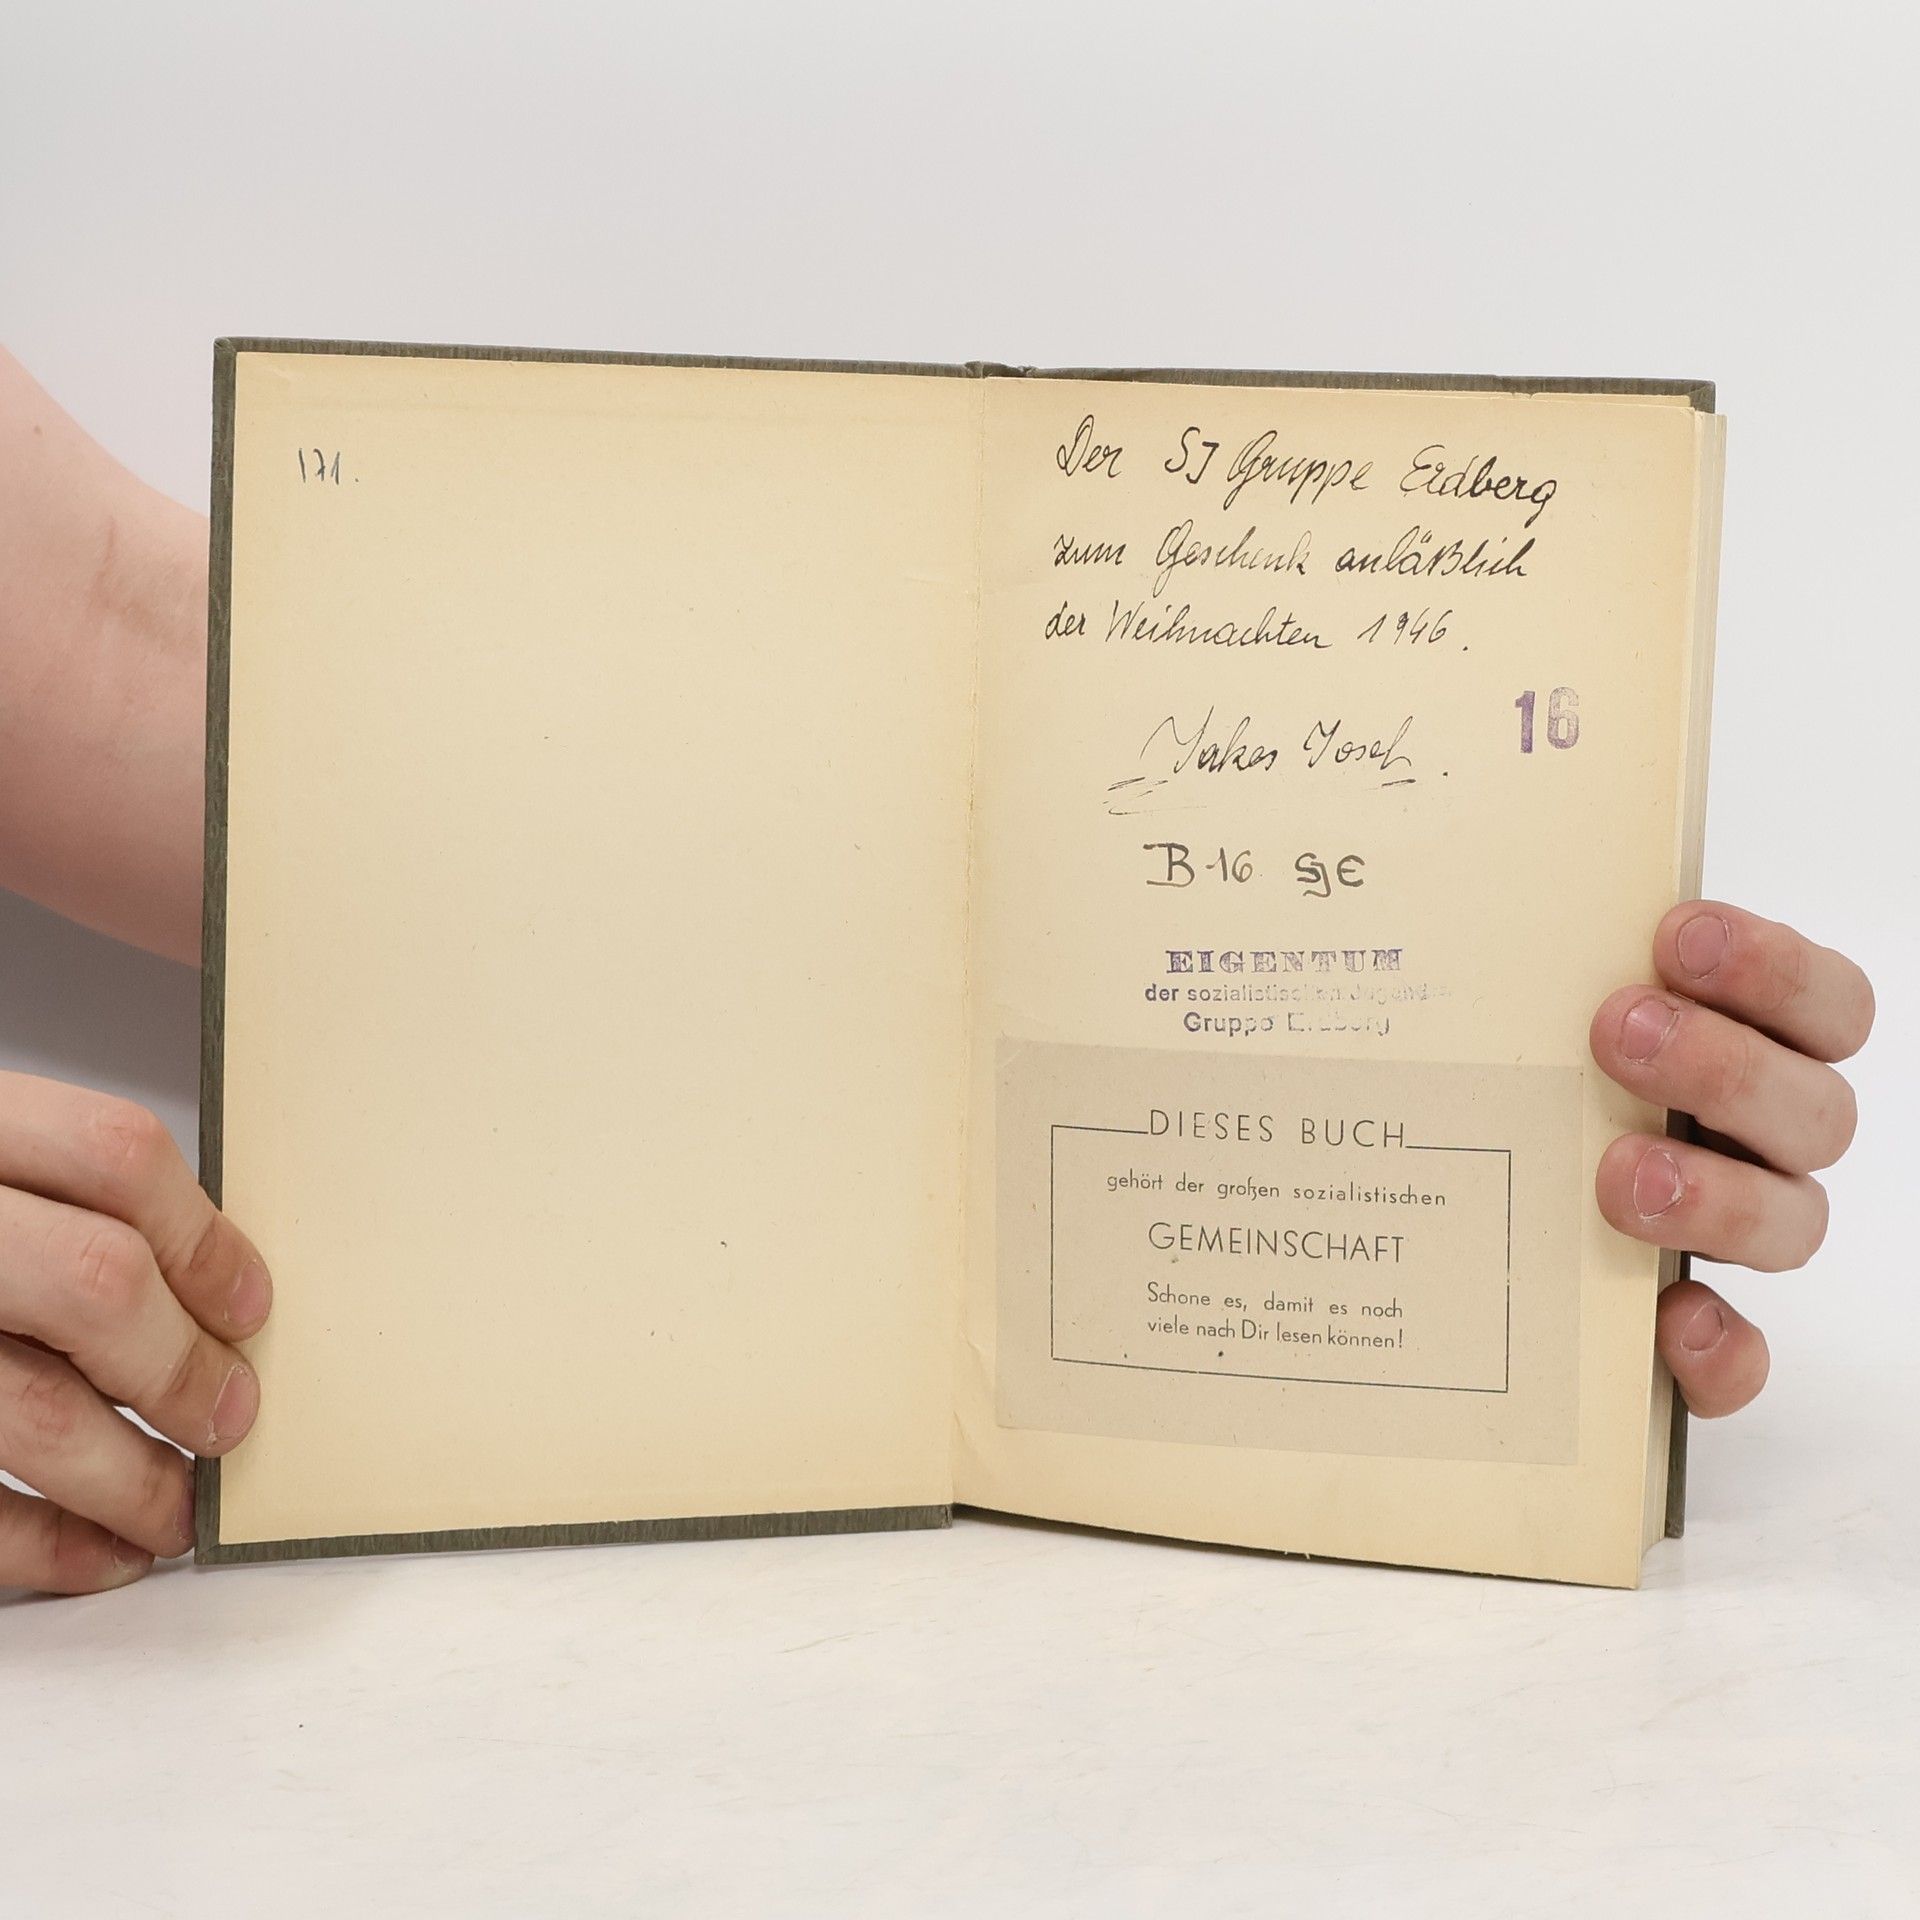 171.
Der SJ Gruppe Erdberg
zum Geschenk anläßlich
der Weihnachten 1946.
16
Josef.
B-16 SJE
EIGENTUM
der sozialistischen Jugend
Gruppe Erdberg
DIESES BUCH
gehört der großen sozialistischen
GEMEINSCHAFT
Schone es, damit es noch
viele nach Dir lesen können!